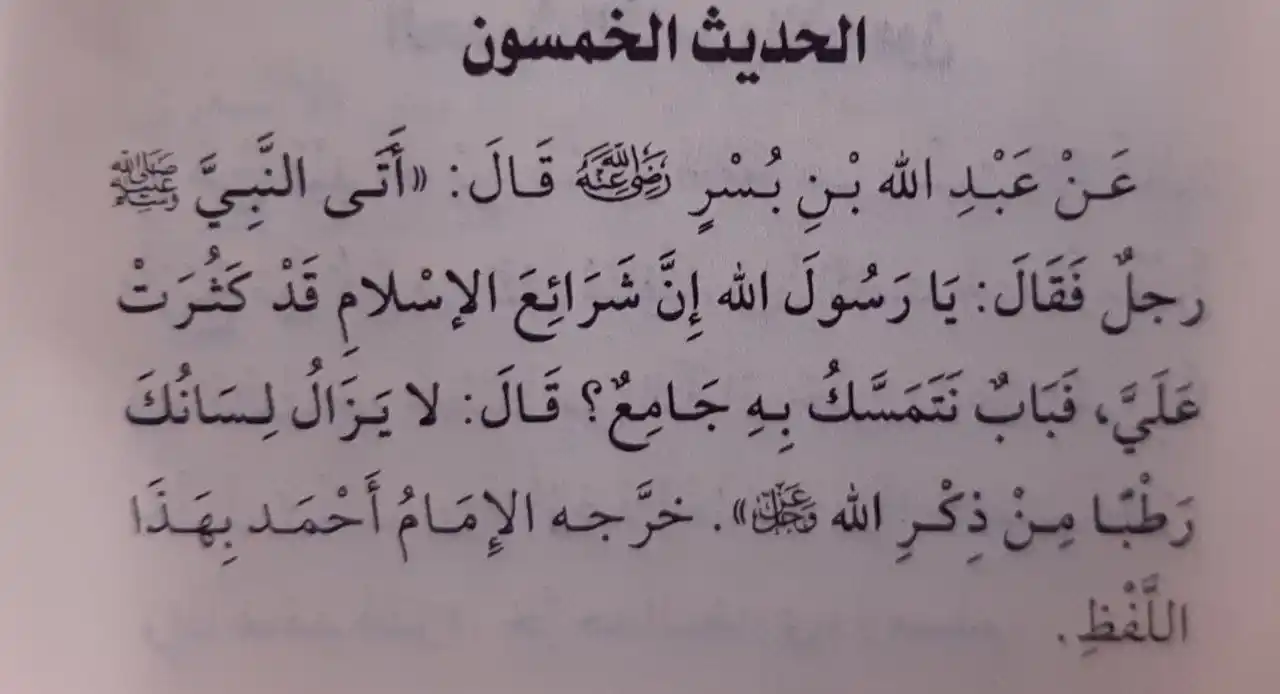 الحديث الخمسون
عَـنْ عَبْـدِ الله بْـنِ بُـسْرٍ رَضِيَ اللَّهُ عَنْهُ قَـالَ: «أَتَـى النَّبِـيَّ ﷺ
رجلٌ فَقَالَ: يَا رَسُولَ الله إِنَّ شَرَائِعَ الإسْلامِ قَدْ كَثُرَتْ
عَلَيَّ، فَبَابٌ نَتَمَسَّكُ بِـهِ جَـامِعٌ؟ قَـالَ: لا يَـزَالُ لِـسَانُكَ
رَطْبًـا مِـنْ ذِكْـرِ الله عَزَّ وَجَلَّ». خرَّجـه الإِمَـامُ أَحْمَـد بِهَـذَا
اللَّفْظِ.